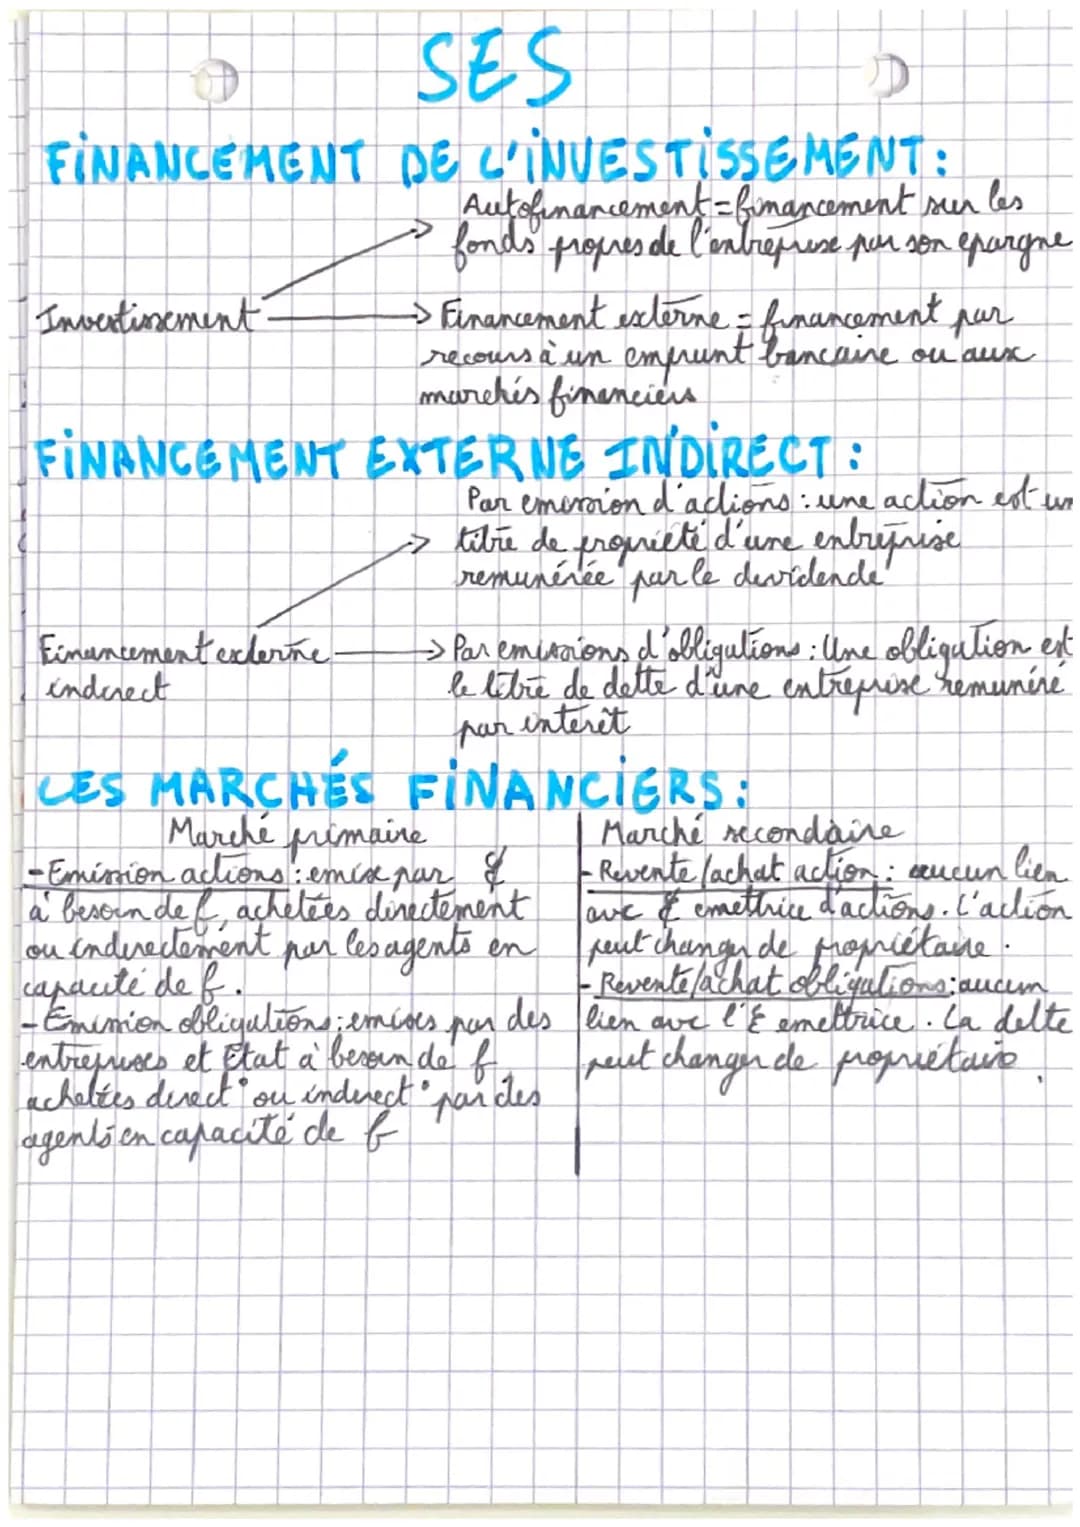 SES
FINANCEMENT DE L'INVESTISSEMENT :
Autofinancement = financement sur les
fonds propres de l'entreprise par son epargne
Investissement
Financement externe = financement par
recours à un emprunt bancaire ou aux
marchés financiers
FINANCEMENT EXTERNE INDIRECT :
Par emission d'actions : une action est un
titre de propriété d'une entreprise
remunérée par le dividende
Financement externe
indirect
Par emissions d'obligations : Une obligation est
le titre de dette d'une entreprise remunéré
par interêt
LES MARCHÉS FINANCIERS :
Marché primaire
- Emission actions : emise par £
à besoin de f, achetées directement
ou indirectement par les agents en
capacité de f.
- Emission obligations : emises par des
entreprises et Etat à besoin de f
achetées direct° ou indirect° par des
agents en capacité de f
Marché secondaire
- Revente/achat action : aucun lien
avc £ emettrice d'actions. L'action
peut changer de propriétaire.
- Revente/achat obligations : aucun
lien avc l'£ emettrice. La dette
peut changer de propriétaire.